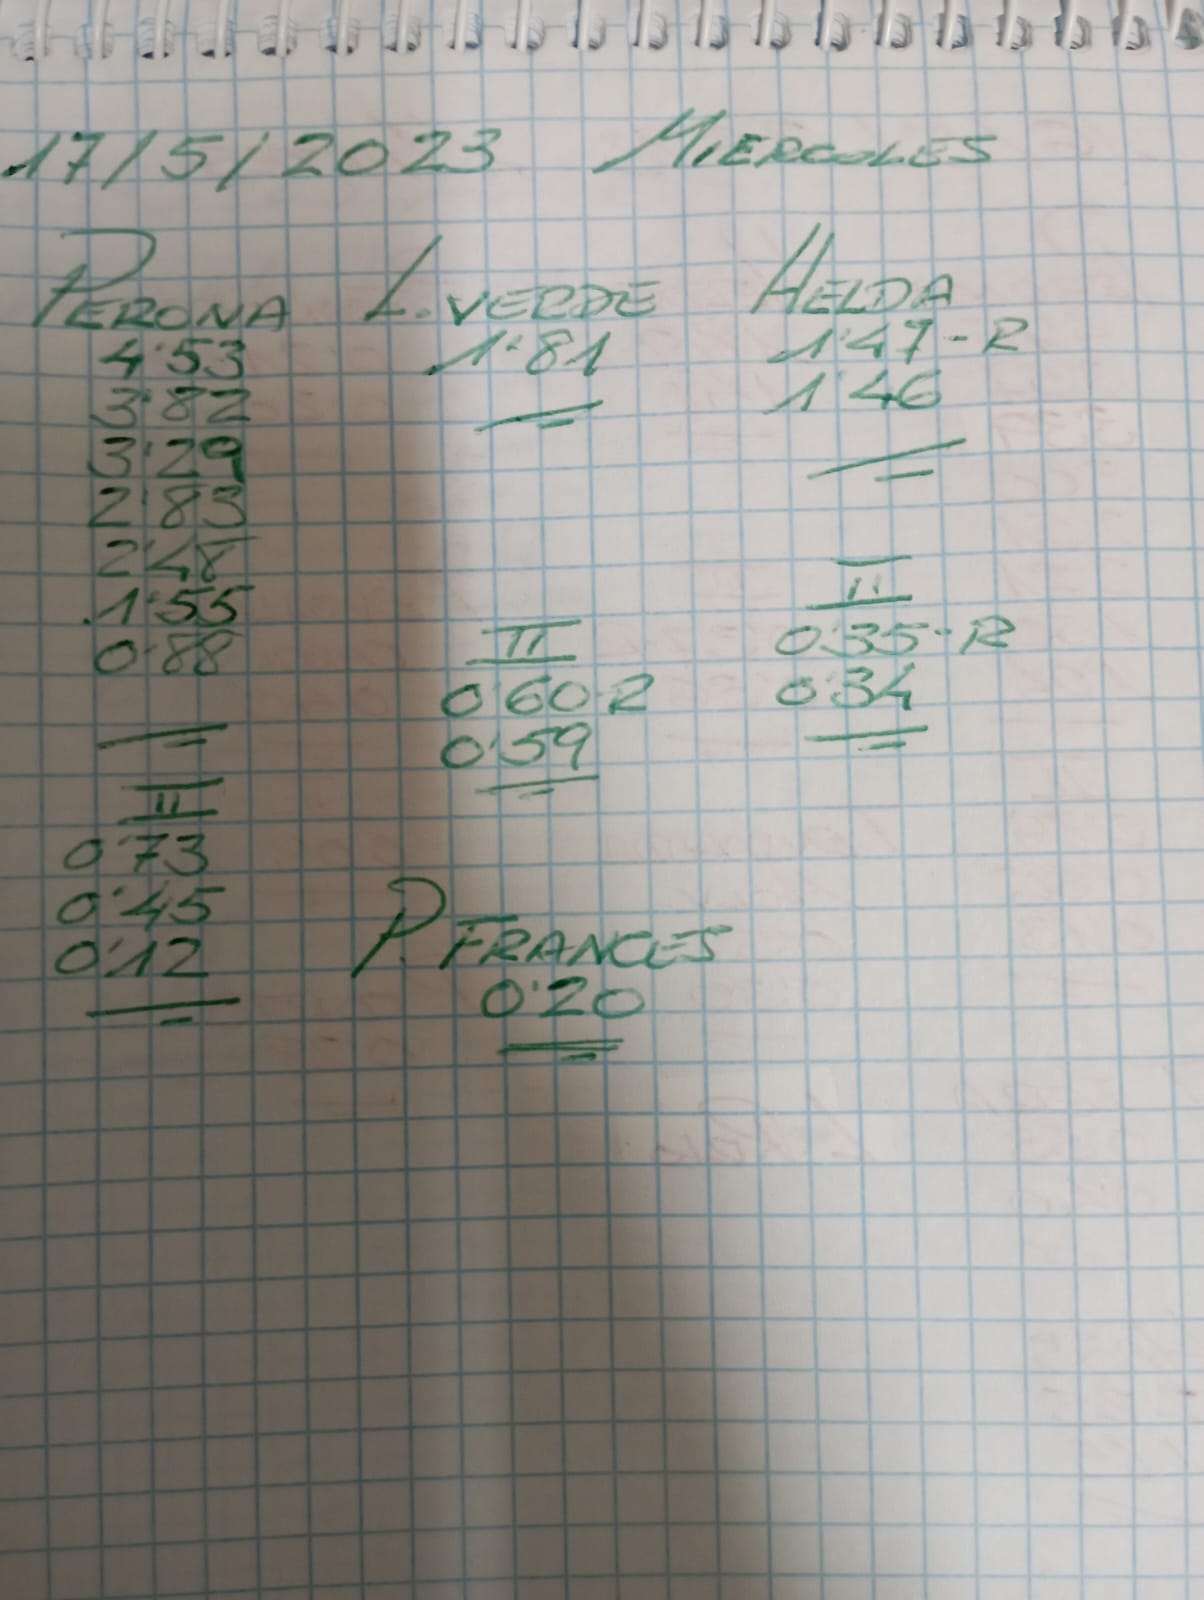 17/5/2023 MIERCOLES
PERONA
4'53
3'82
3'29
2'83
2'48
1'55
0'88
II
0'73
0'45
0'12
L. VERDE
1'81
II
0'60-R
0'59
P. FRANCES
0'20
HELDA
1'47-R
1'46
II
0'35-R
0'34